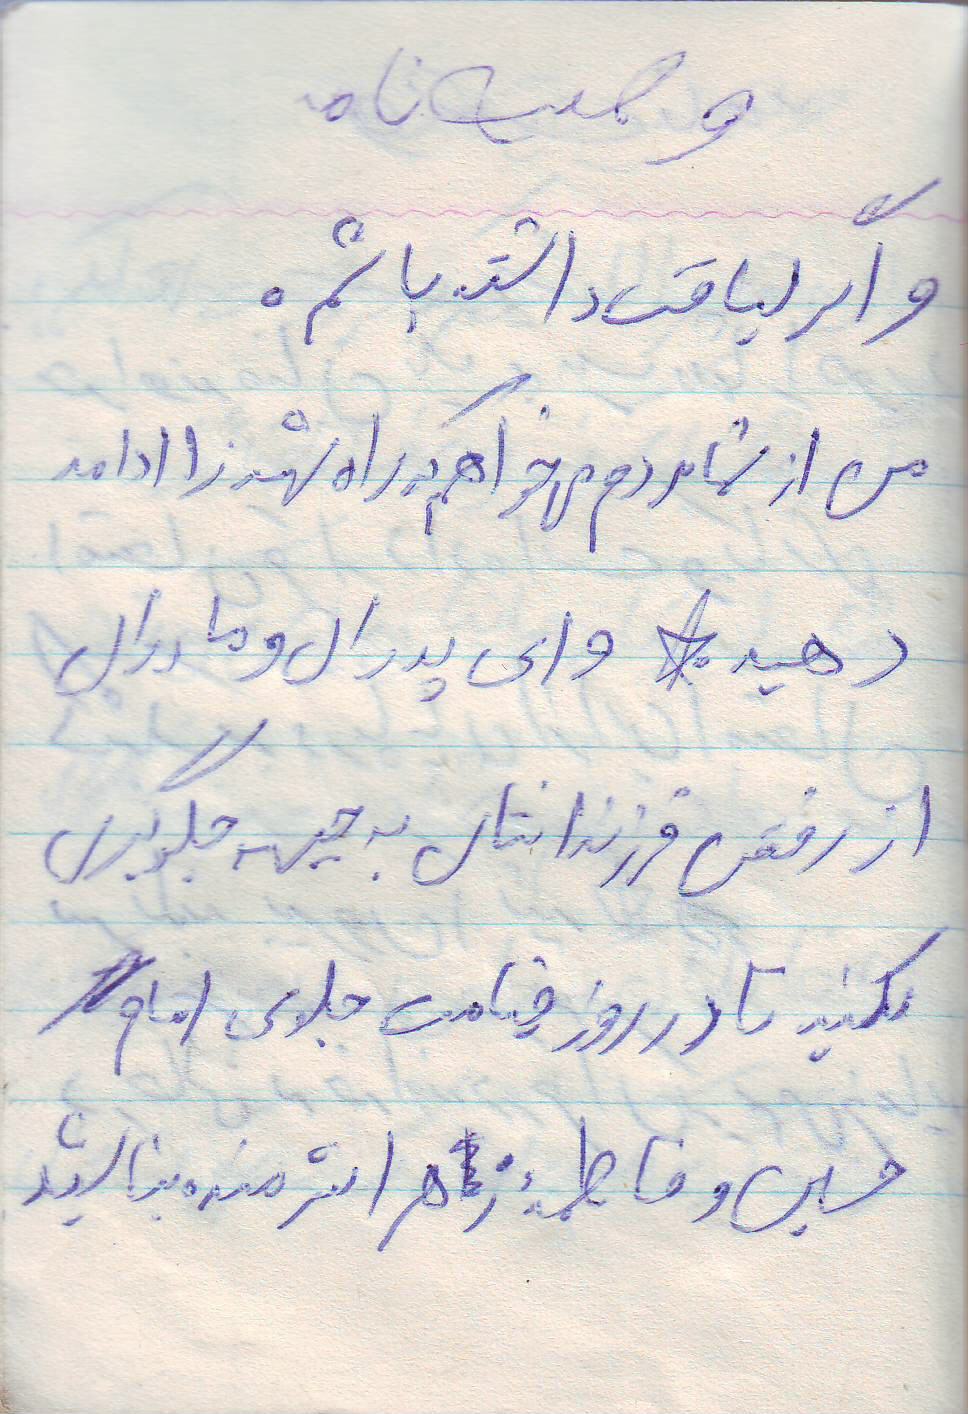 وصیت نامه
و اگر لیاقت داشته باشم.
من از شما مردم می خواهم که راه شهدا را ادامه
دهید و ای پدران و مادران
از رفتن فرزندانتان به جبهه جلوگیری
نکنید تا در روز قیامت جلوی امام
حسین و فاطمه زهرا شرمنده نباشید